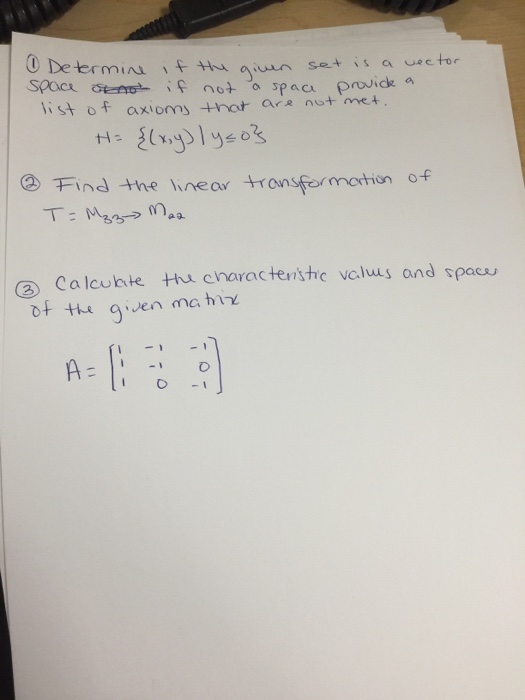 ① Determine if the given set is a vector
space if not a space provide a
list of axioms that are not met.
H = {(x,y) | y ≤ 0}
② Find the linear transformation of
T = M33 → M22
③ Calculate the characteristic values and spaces
of the given matrix
A = [ 1 -1 -1
1 -1 0
1 0 -1 ]